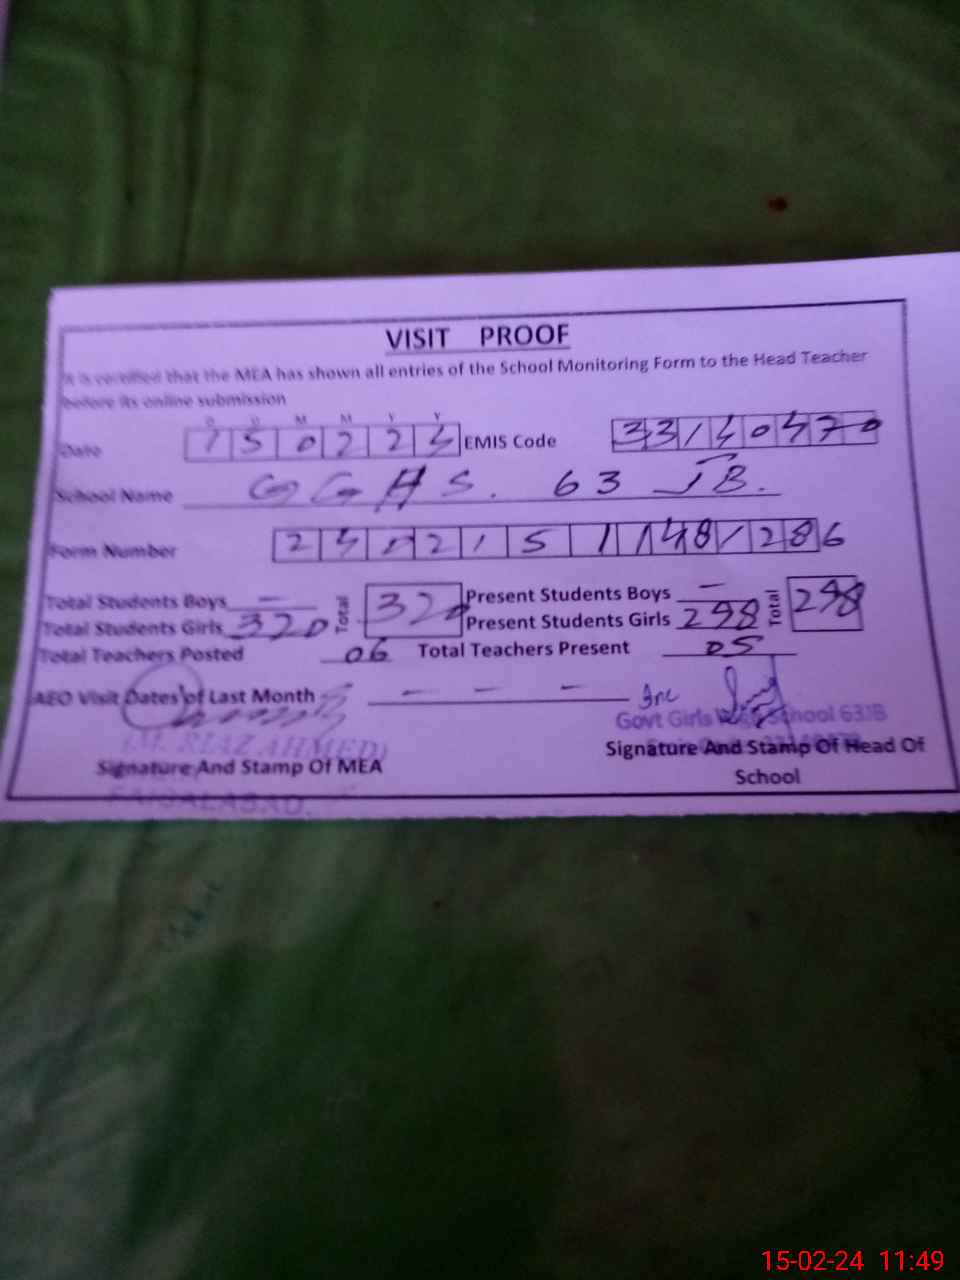 VISIT PROOF
It is certified that the MEA has shown all entries of the School Monitoring Form to the Head Teacher
before its online submission
D D M M Y Y
Date 150224 EMIS Code 33140470
School Name GGHS. 63 JB.
Form Number 24021511148/286
Total Students Boys — Total 320 Present Students Boys — Total 298
Total Students Girls 320 Present Students Girls 298
Total Teachers Posted 06 Total Teachers Present 05
AEO Visit Dates of Last Month — — —
Govt Girls High School 63JB
(M. RIAZ AHMED)
Signature And Stamp Of MEA Signature And Stamp Of Head Of
School
FAISALABAD.
15-02-24 11:49